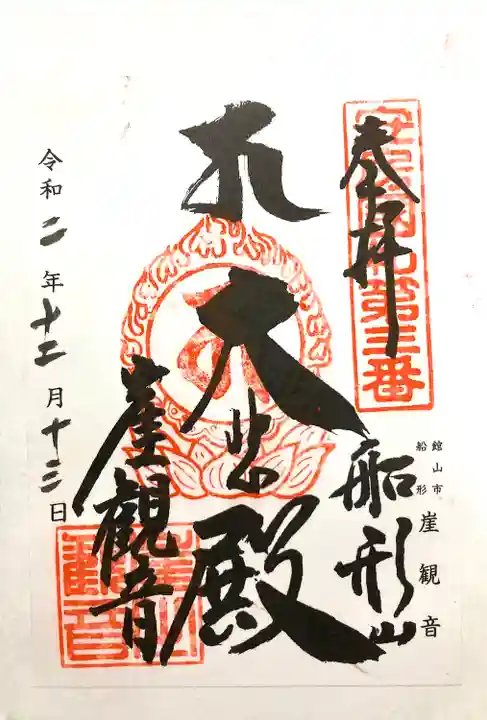 奉拝
船形山
館山市
船形
崖観音
大悲殿
崖観音
令和二年十二月十三日